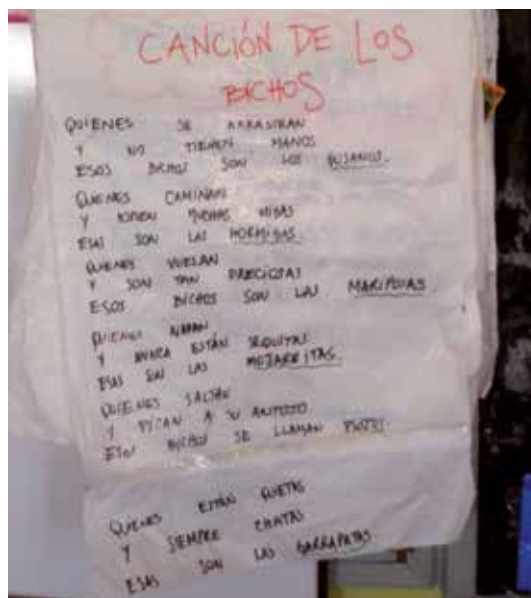 CANCIÓN DE LOS
BICHOS
QUIENES SE ARRASTRAN
Y NO TIENEN MANOS
ESOS BICHOS SON LOS GUSANOS.
QUIENES CAMINAN
Y COMEN MUCHAS MIGAS
ESAS SON LAS HORMIGAS.
QUIENES VUELAN
Y SON TAN PRECIOSAS
ESOS BICHOS SON LAS MARIPOSAS.
QUIENES NADAN
Y NUNCA ESTÁN SEQUITAS
ESAS SON LAS MOJARRITAS.
QUIENES SALTAN
Y PICAN A SU ANTOJO
ESOS BICHOS SE LLAMAN PIOJOS
QUIENES ESTÁN QUIETAS
Y SIEMPRE CHATAS
ESAS SON LAS GARRAPATAS.